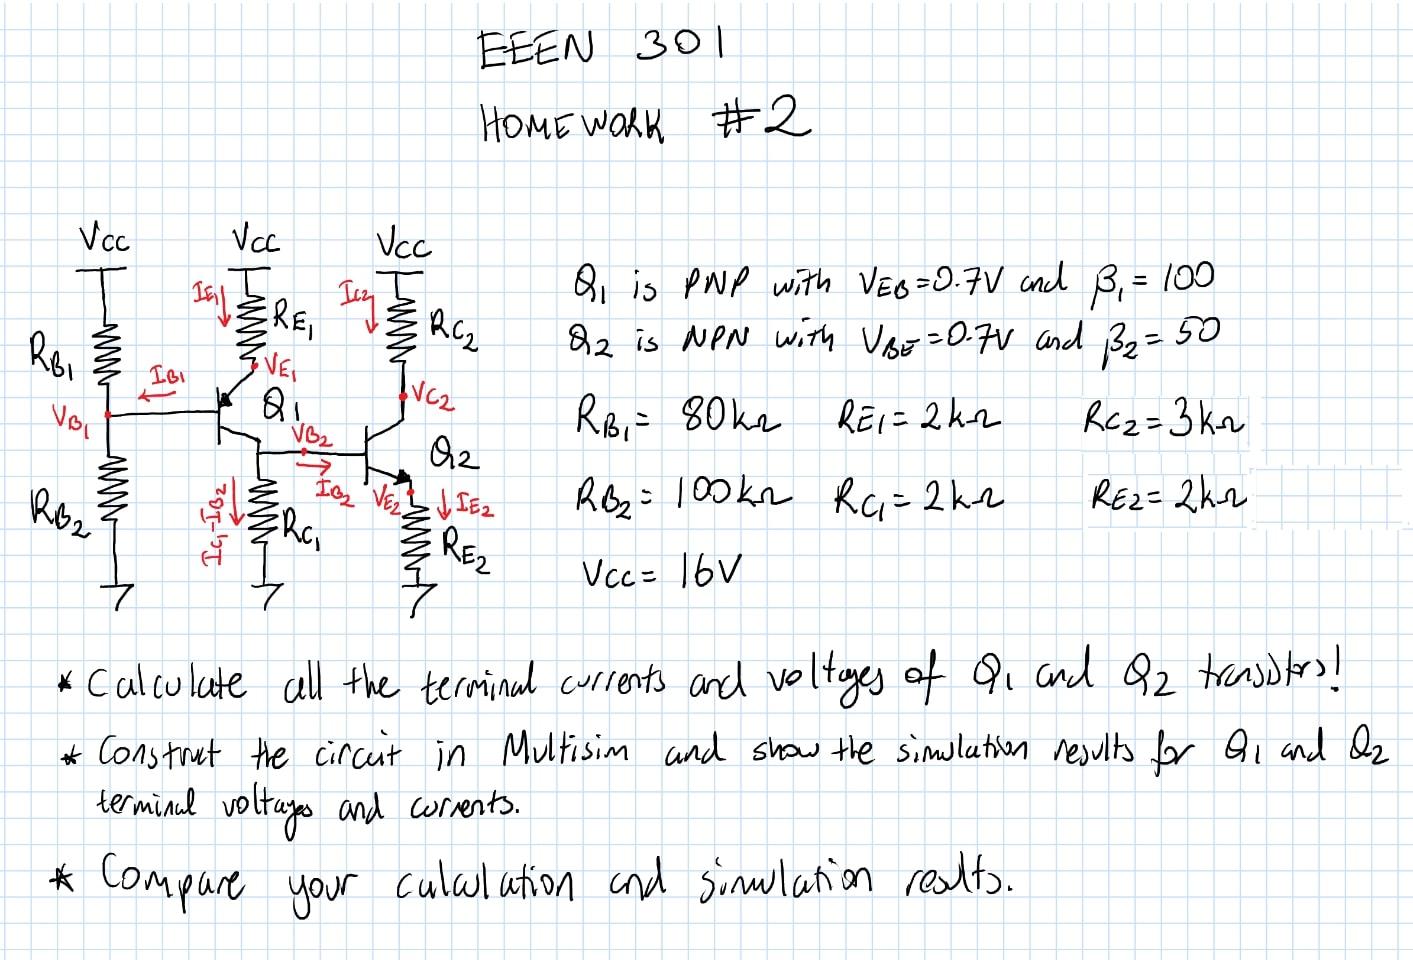 EEEN 301
HOMEWORK #2
Vcc Vcc Vcc
IE1 RE1 IC2 RC2
RB1 IB1 VE1 VC2
VB1 Q1 VB2
Q2
RB2 IB2 VE2 IE2
IC1-IB2 RC1 RE2
Q1 is PNP with VEB=0.7V and β1=100
Q2 is NPN with VBE=0.7V and β2=50
RB1= 80kΩ RE1=2kΩ RC2=3kΩ
RB2= 100kΩ RC1=2kΩ RE2=2kΩ
Vcc= 16V
* Calculate all the terminal currents and voltages of Q1 and Q2 transistors!
* Construct the circuit in Multisim and show the simulation results for Q1 and Q2
terminal voltages and currents.
* Compare your calculation and simulation results.